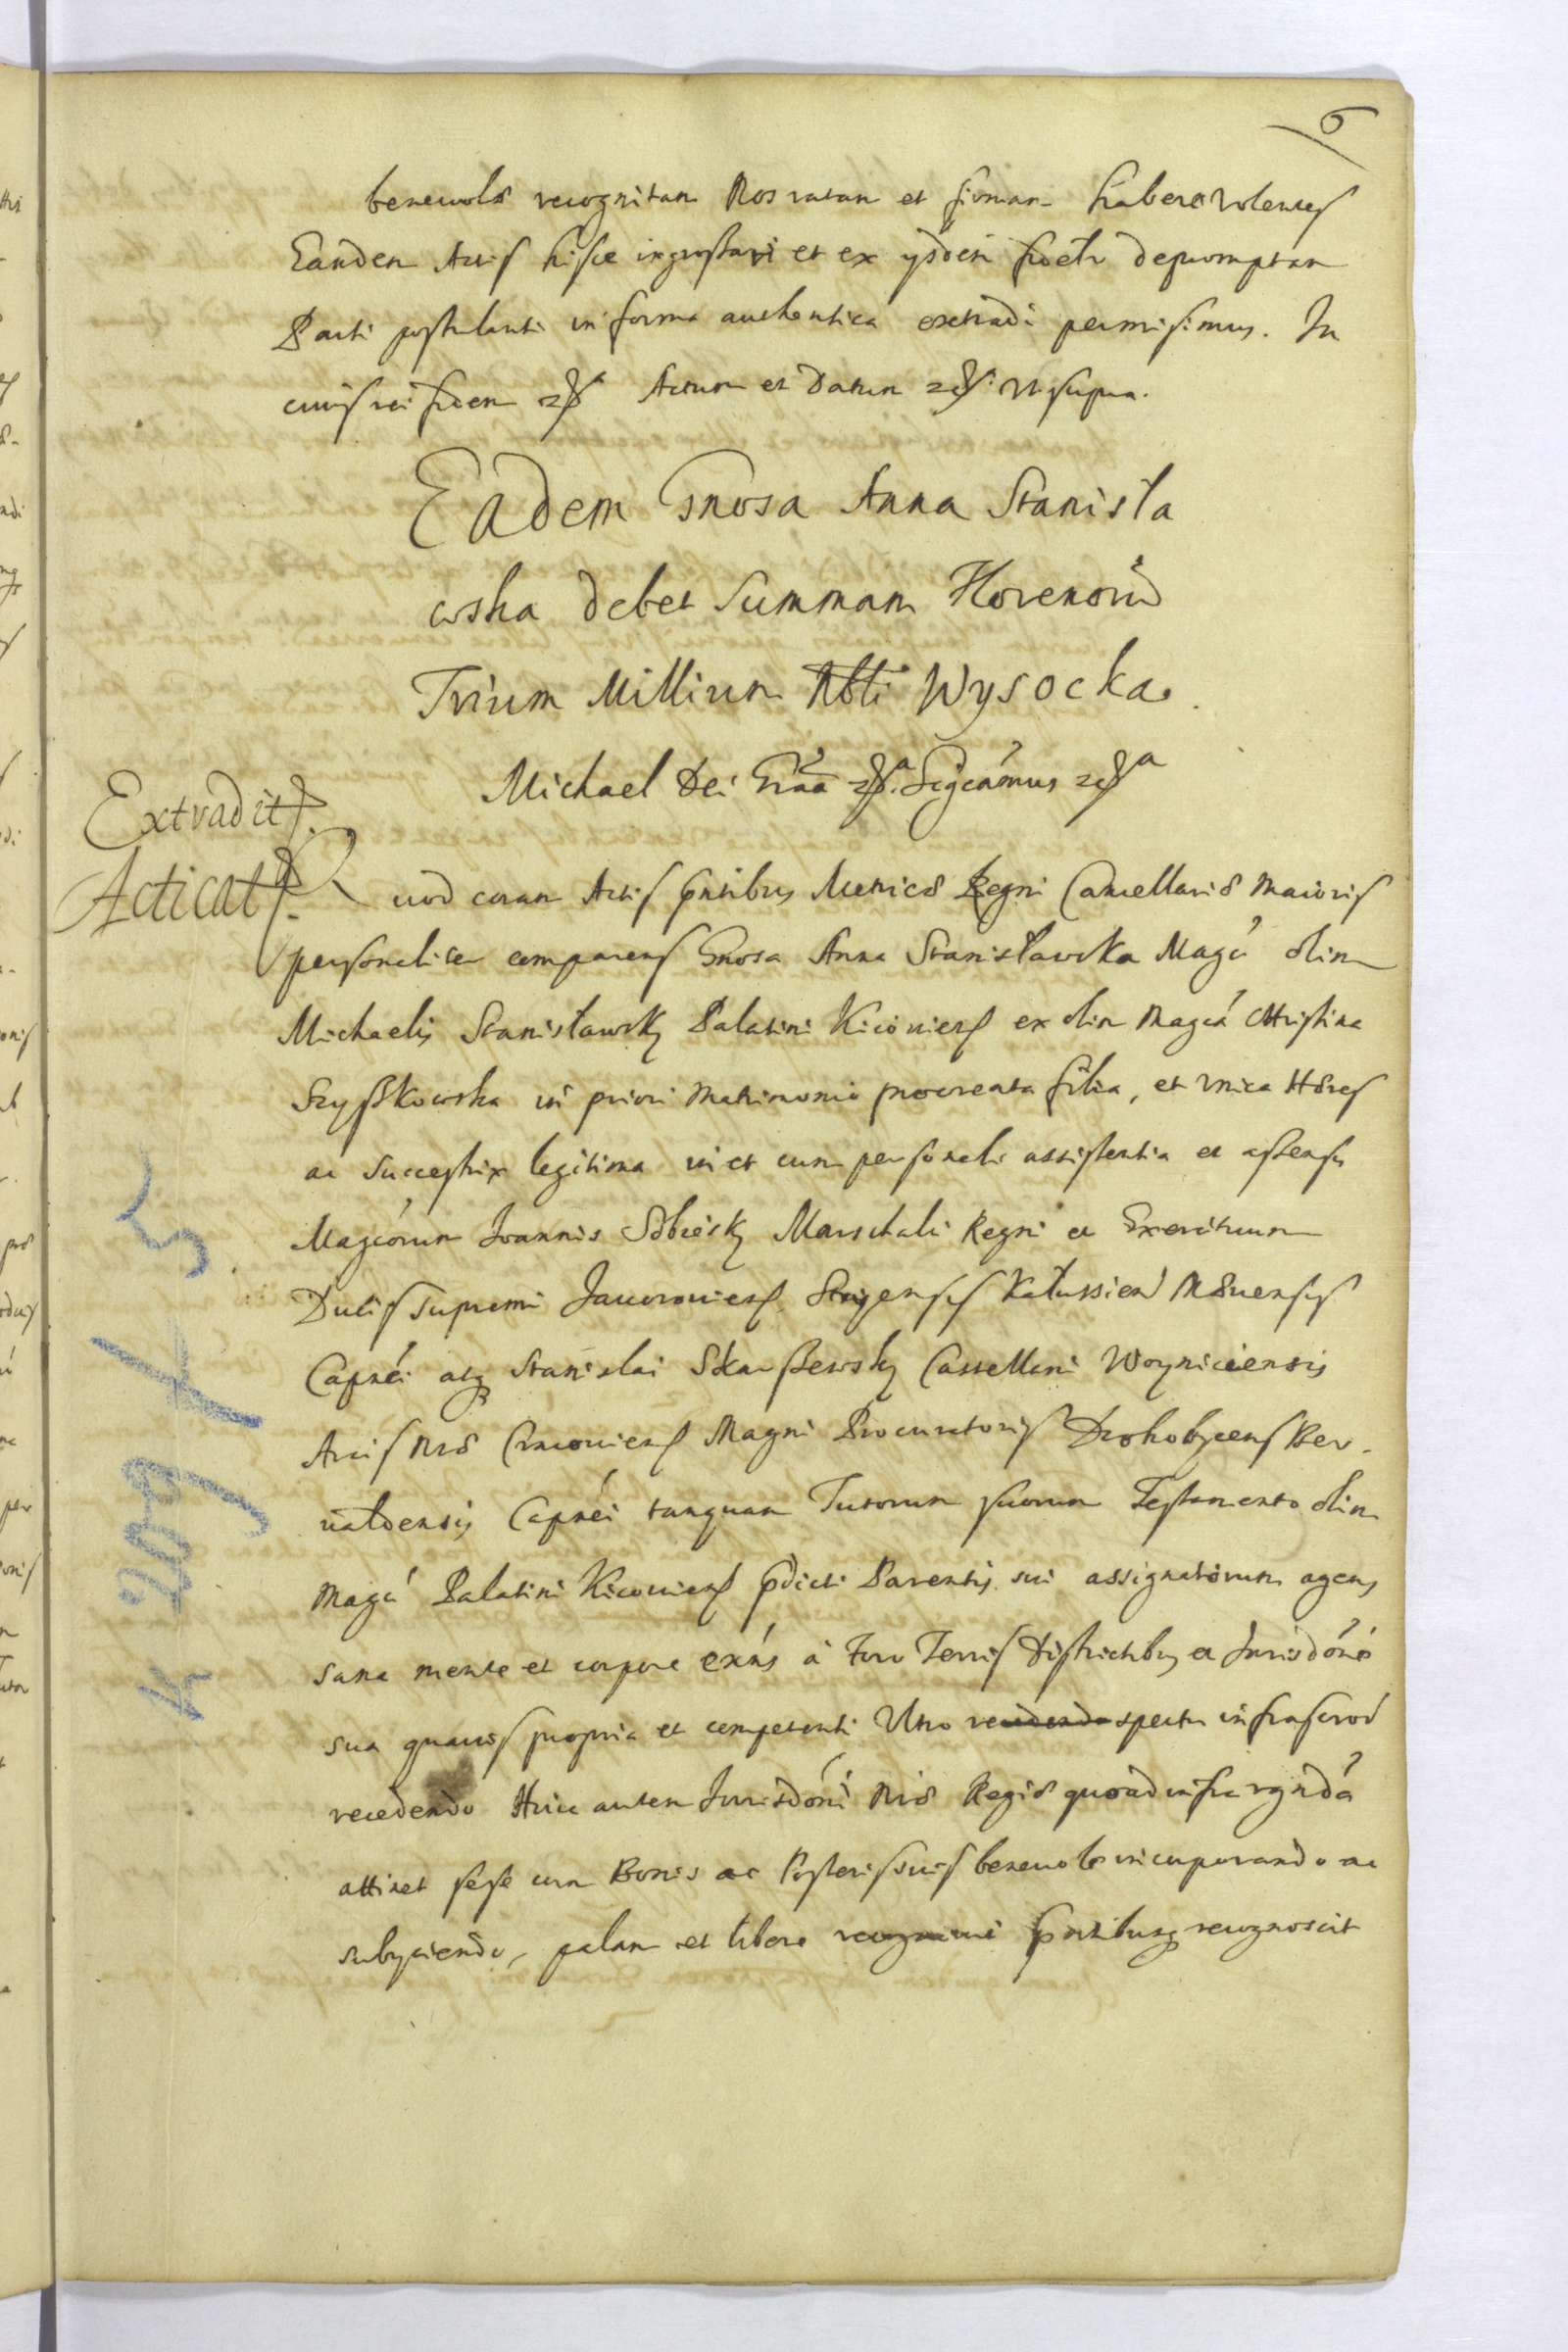 6
benevole recognitam Nos ratam et firmam habere volentes
Eandem Actis hisce ingrossari et ex ijsdem fidelr depromptam
Parti postulanti in forma authentica extradi permisimus. In
cuius rei fidem Actum et Datum Ut supra.
Eadem Gnosa Anna Stanisła
wska debet Summam Florenorũ
Trium Millium Nbli Wysocka.
Michael Dei Grãa Sigcamus
Extradit
Acticat
Quod coram Actis pntibus Metrices Regni Cancellariæ Maioris
personaliter comparens Gnosa Anna Stanisławska Magci olim
Michaelis Stanisławsky Palatini Kiiouiens ex olim Magca Christina
Szyszkowska in priori Matrimonio procreata filia, et vnica Hæres
ac Successtrix legitima in et cum personali assistentia et assensu
Magcorum Joannis Sobiesky Marschalci Regni et Exercituum
Ducis supremi Jauorouiens. Stryiensis Kałussien Mæuensis
Capnei atq Stanislai Skarszewsky Castellani Woyniciensis
Arcis Nræ Cracouiens Magni Procuratoris Drohobycens Ber-
ualdensis Capnei tanquam Tutorum suorum Testamento olim
Magci Palatini Kiiouiens pdicti Parentis sui assignatorum agens
sana mente et corpore exñs à foro Terris Districtibus et Jurisdóne
sua quauis propria et competenti Vtro infrascrod
recedendo Huic autem Jurisdóni Nræ Regiæ quoad infra rgnda
attinet sese cum Bonis ac Posteris suis beneuole incorporando ac
subijciendo, palam et libere pntibusq recognoscit
K 209 / 5